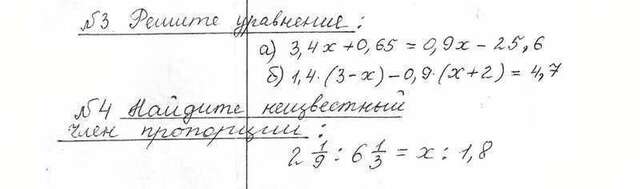 №3 Решите уравнение:
а) 3,4x+0,65=0,9x-25,6
б) 1,4·(3-x)-0,9·(x+2)=4,7
№4 Найдите неизвестный
член пропорции:
2 1/9 : 6 1/3 = x : 1,8